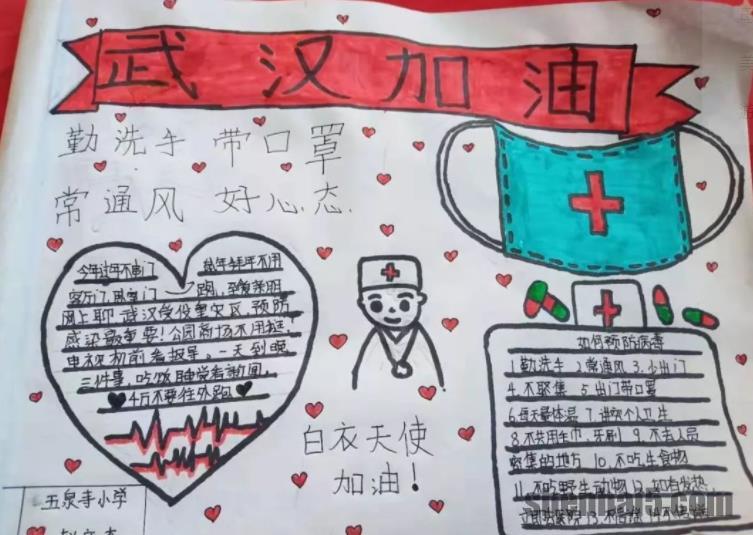 武汉加油
勤洗手 带口罩
常通风 好心态
今年过年不串门
客厅门、卧室门
网上聊 武汉受役重灾区,预防
感染最重要!公园商场不用挺,
电视机前看报导。一天到晚
三件事,吃饭睡觉看新闻,
千万不要往外跑
白衣天使
加油!
如何预防病毒
1.勤洗手 2.常通风 3.少出门
4.不聚集 5.出门带口罩
6.每天量体温 7.讲究个人卫生
8.不共用毛巾、牙刷 9.不去人员
密集的地方 10.不吃生食物
11.不吃野生动物 12.如有发热,
立即去医院 13.
五泉寺小学